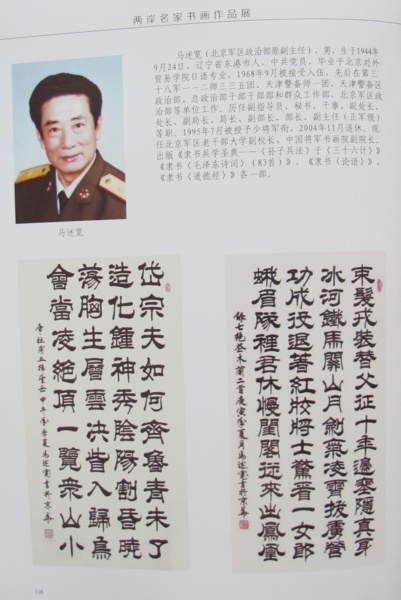 两岸名家书画作品展
马述宽（北京军区政治部原副主任），男，生于1944年
9月24日，辽宁省东港市人，中共党员，毕业于北京对外
贸易学院日语专业，1968年9月被接受入伍，先后在第三
十八军一一二师三三五团、天津警备师一团、天津警备区
政治部、总政治部干部部和群众工作部、北京军区政
治部等单位工作。历任副指导员、秘书、干事、副处长、
处长、副局长、局长、副部长、部长、副主任（正军级）
等职，1995年7月被授予少将军衔，2004年11月退休。现
任北京军区老干部大学副校长、中国将军书画院副院长。
出版《隶书兵学圣典——〈孙子兵法〉于〈三十六计〉》
《隶书〈毛泽东诗词〉（83首）》、《隶书〈论语〉》、
《隶书〈道德经〉》各一部。
马述宽
岱宗夫如何齐鲁青未了
造化鍾神秀陰陽割昏曉
荡胸生層雲决眥入歸鳥
會當凌絶頂一覽衆山小
唐杜甫五律望岳甲午年季夏馬述寬書於京華
束髮戎裝替父征十年邊塞隱真身
冰河鐵馬關山月劍氣凌霄拔虜營
功成役退著紅妝將士驚看一女郎
蛾眉隊裡君休慢閨閣從來出鳳凰
錄七絶花木蘭二首庚寅年夏月馬述寬書於京華